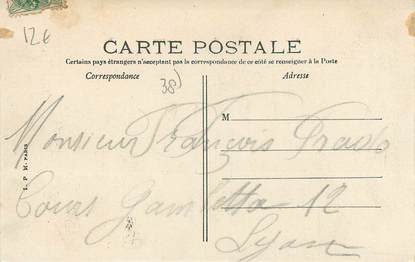 12€
CARTE POSTALE
Certains pays étrangers n'acceptent pas la correspondance de ce côté se renseigner à la Poste
Correspondance
Adresse
38)
M
Monsieur François Prado
Cours Gambetta 12
Lyon
I. P. M. PARIS